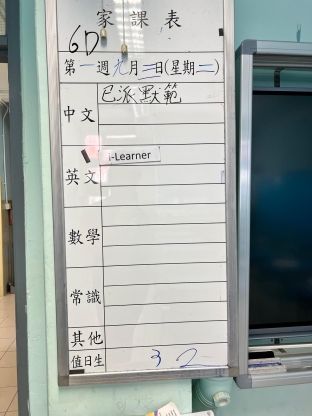 家課表
6D
第一週九月三日(星期二)
中文 已派默範
英文 i-Learner
數學
常識
其他
值日生 3 2